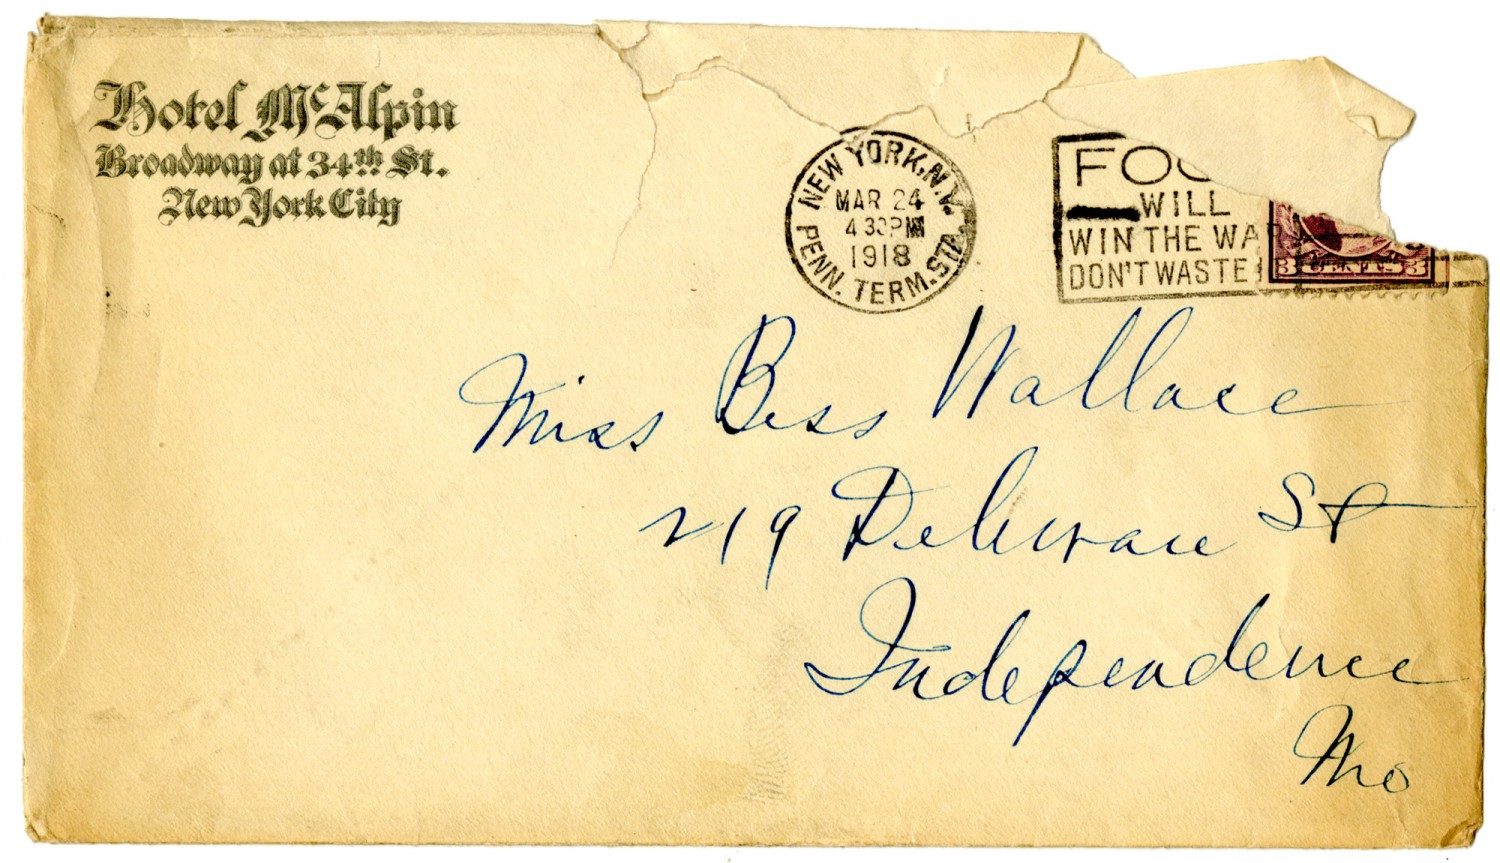 Hotel McAlpin
Broadway at 34th St.
New York City
NEW YORK, N.Y.
MAR 24
4 30 PM
1918
PENN. TERM. STA.
FOO
WILL
WIN THE WAR
DON'T WASTE
3 CENTS 3
Miss Bess Wallace
219 Delware St
Independence
Mo